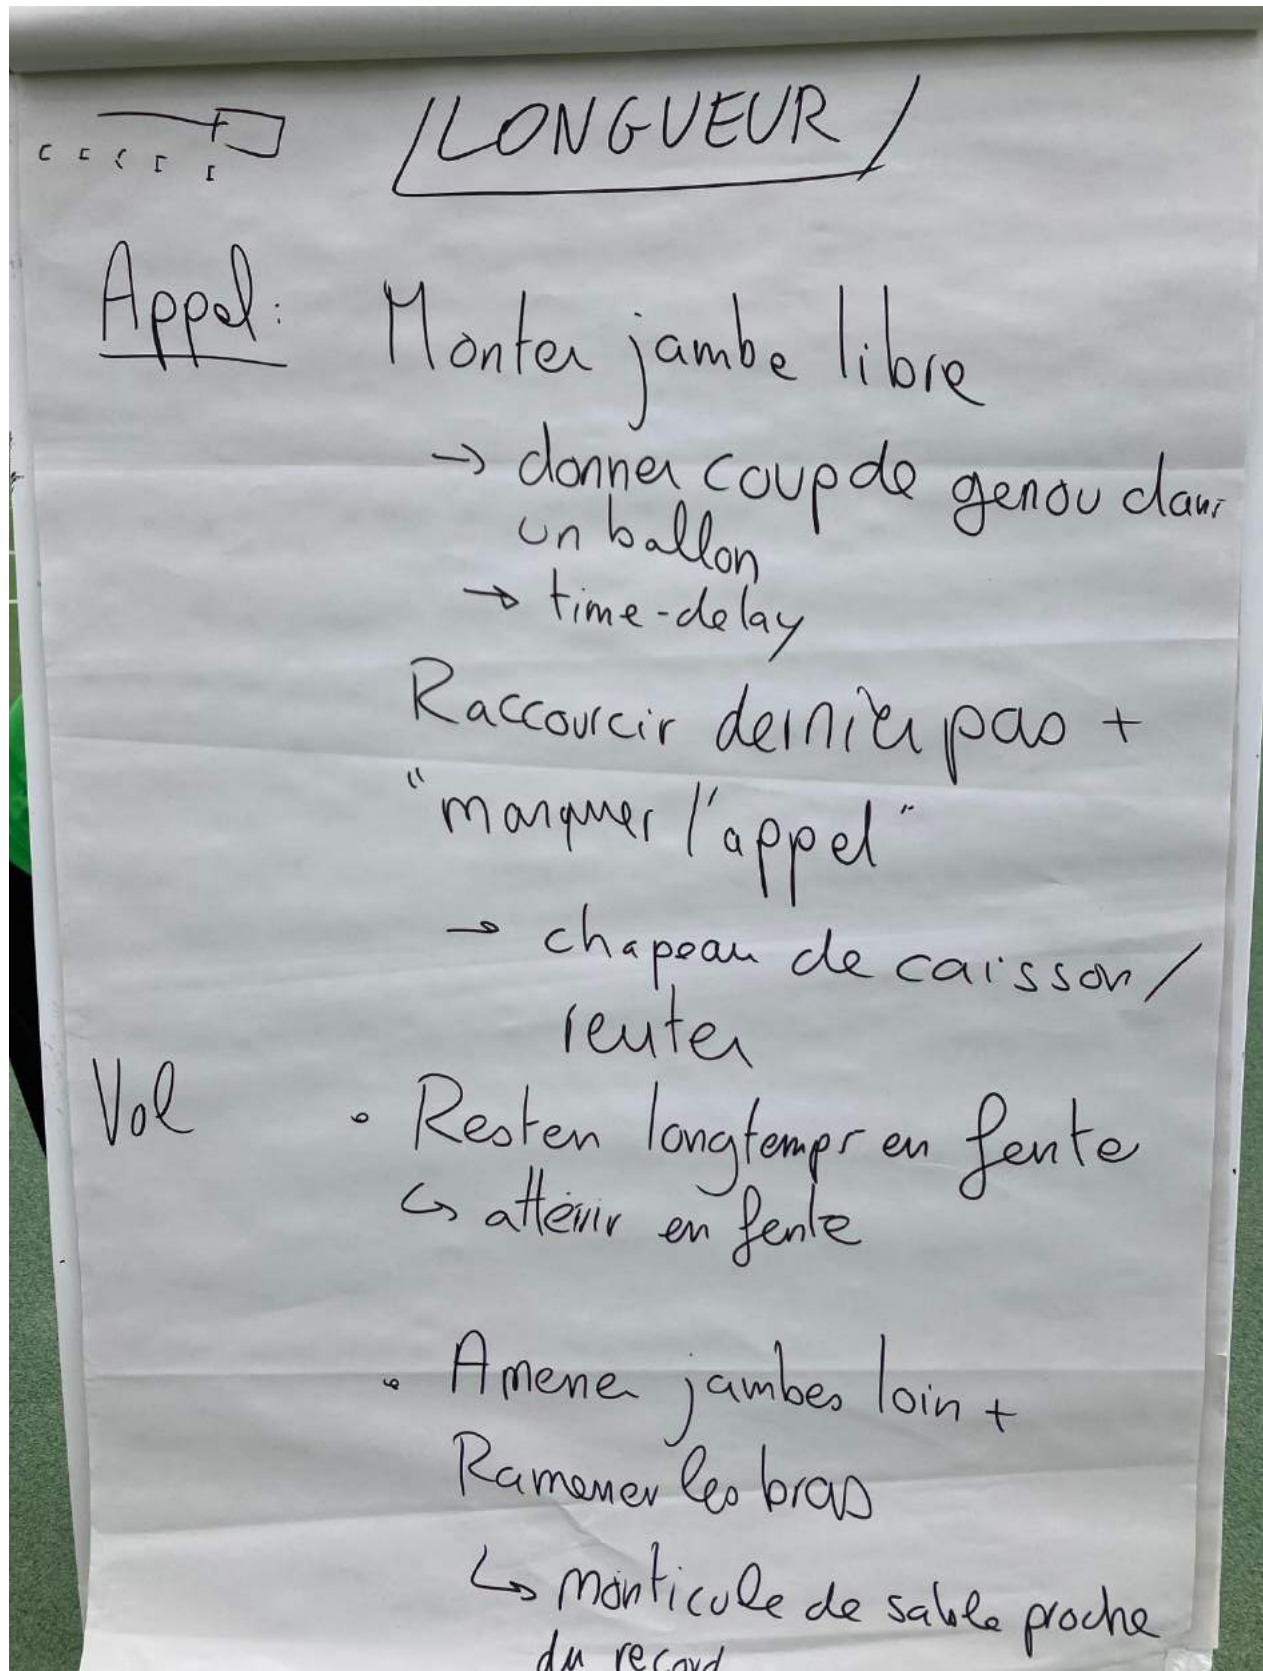 LONGUEUR
Appel: Monter jambe libre
→ donner coup de genou dans
un ballon
→ time-delay
Raccourcir dernier pas +
"marquer l'appel"
→ chapeau de caisson /
reuter
Vol • Rester longtemps en fente
↳ attérir en fente
• Amener jambes loin +
Ramener les bras
↳ monticule de sable proche
du record